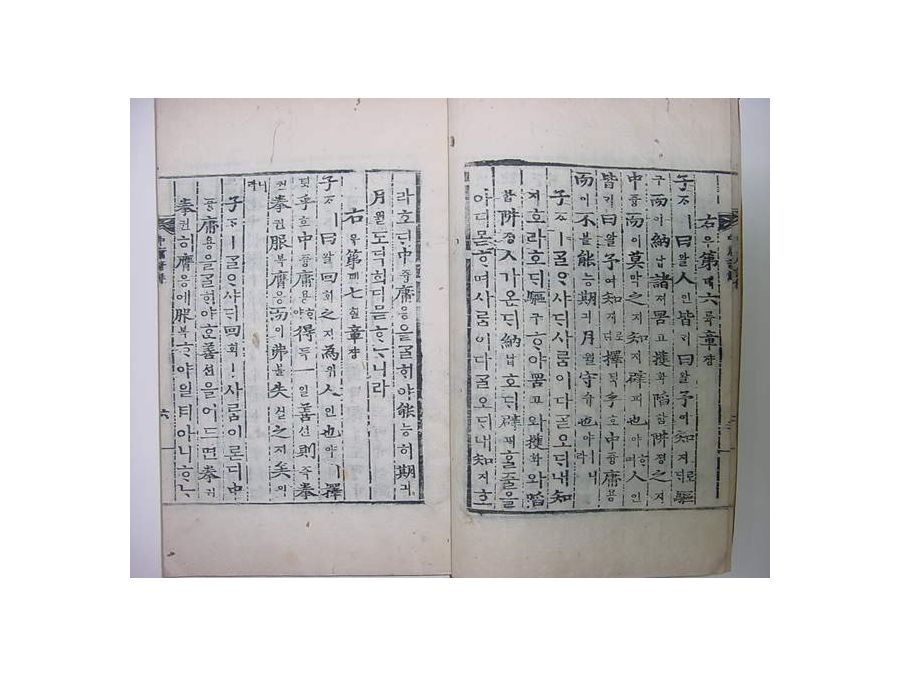 右우第뎨六륙章쟝
子ᄌᆞㅣ曰왈人인皆ᄀᆡ曰왈予여知지로ᄃᆡ驅
구而이納납諸져罟고擭화陷함阱졍之지
中듕而이莫막之지知지辟피也야ᄒᆞ며人인
皆ᄀᆡ曰왈予여知지로ᄃᆡ擇ᄐᆡᆨ乎호中듕庸용
而이不블能능期긔月월守슈也야ㅣ니라
子ᄌᆞㅣᄀᆞᆯᄋᆞ샤ᄃᆡ사ᄅᆞᆷ이다ᄀᆞᆯ오ᄃᆡ내知
지호라호ᄃᆡ驅구ᄒᆞ야罟고와擭화와陷
함阱졍人가온ᄃᆡ納납호ᄃᆡ辟피ᄒᆞᆯ줄을
아디몯ᄒᆞ며사ᄅᆞᆷ이다ᄀᆞᆯ오ᄃᆡ내知지호
라호ᄃᆡ中듕庸용을ᄀᆞᆯᄒᆡ야能능히期긔
月월도딕희디몯ᄒᆞᄂᆞ니라
右우第뎨七칠章쟝
子ᄌᆞㅣ曰왈回회之지爲위人인也야ㅣ擇
ᄐᆡᆨ乎호中듕庸용ᄒᆞ야得득一일善션則즉拳
권拳권服복膺응而이弗블失실之지矣의
니라
子ᄌᆞㅣᄀᆞᆯᄋᆞ샤ᄃᆡ回회의사ᄅᆞᆷ이론디中
듕庸용을ᄀᆞᆯᄒᆡ야ᄒᆞᆫ善션을어드면拳권
拳권히膺응에服복ᄒᆞ야일티아니ᄒᆞᄂᆞ
中庸諺解
六